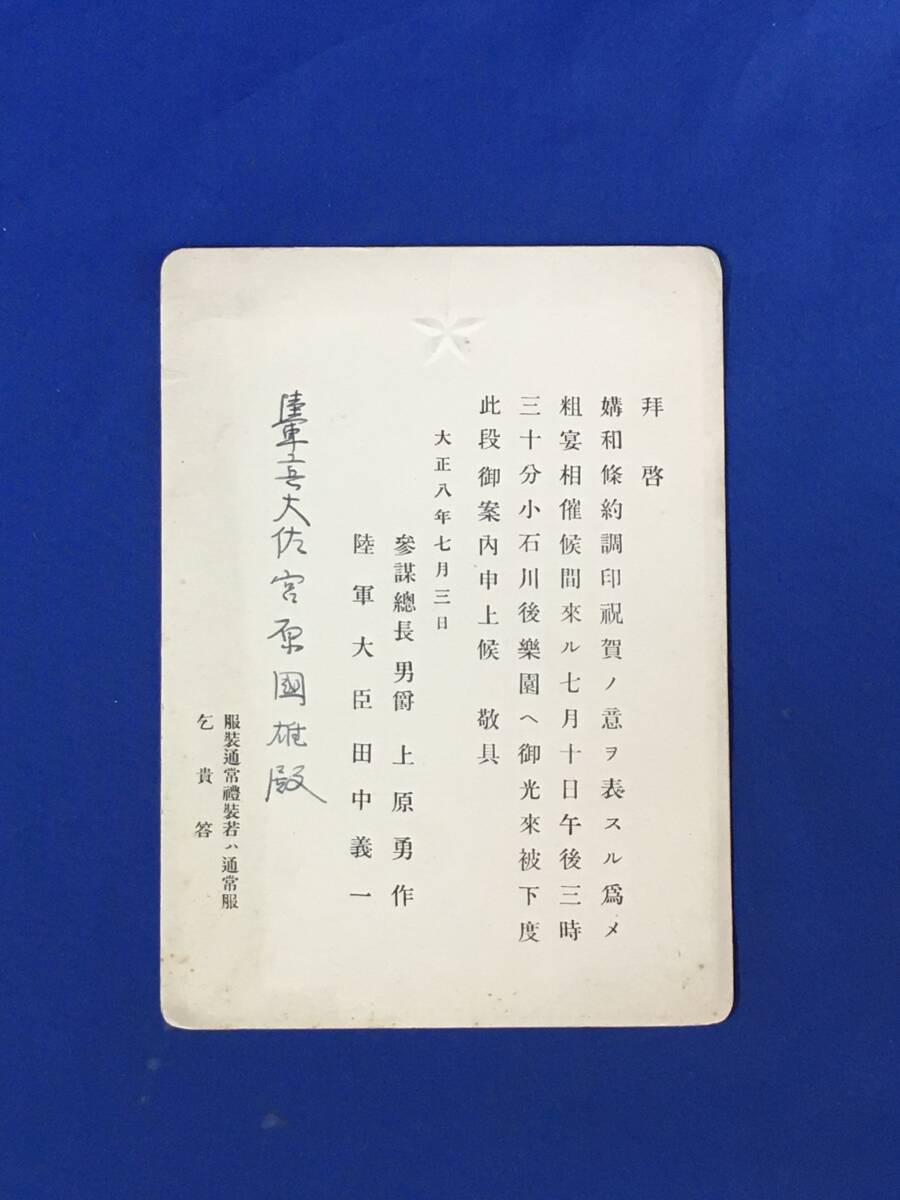 拜啓
媾和條約調印祝賀ノ意ヲ表スル爲メ
粗宴相催候間來ル七月十日午後三時
三十分小石川後樂園ヘ御光來被下度
此段御案內申上候 敬具
大正八年七月三日
參謀總長 男爵 上原勇作
陸軍大臣 田中義一
陸軍工兵大佐宮原國雄殿
服裝通常禮裝若ハ通常服
乞貴答